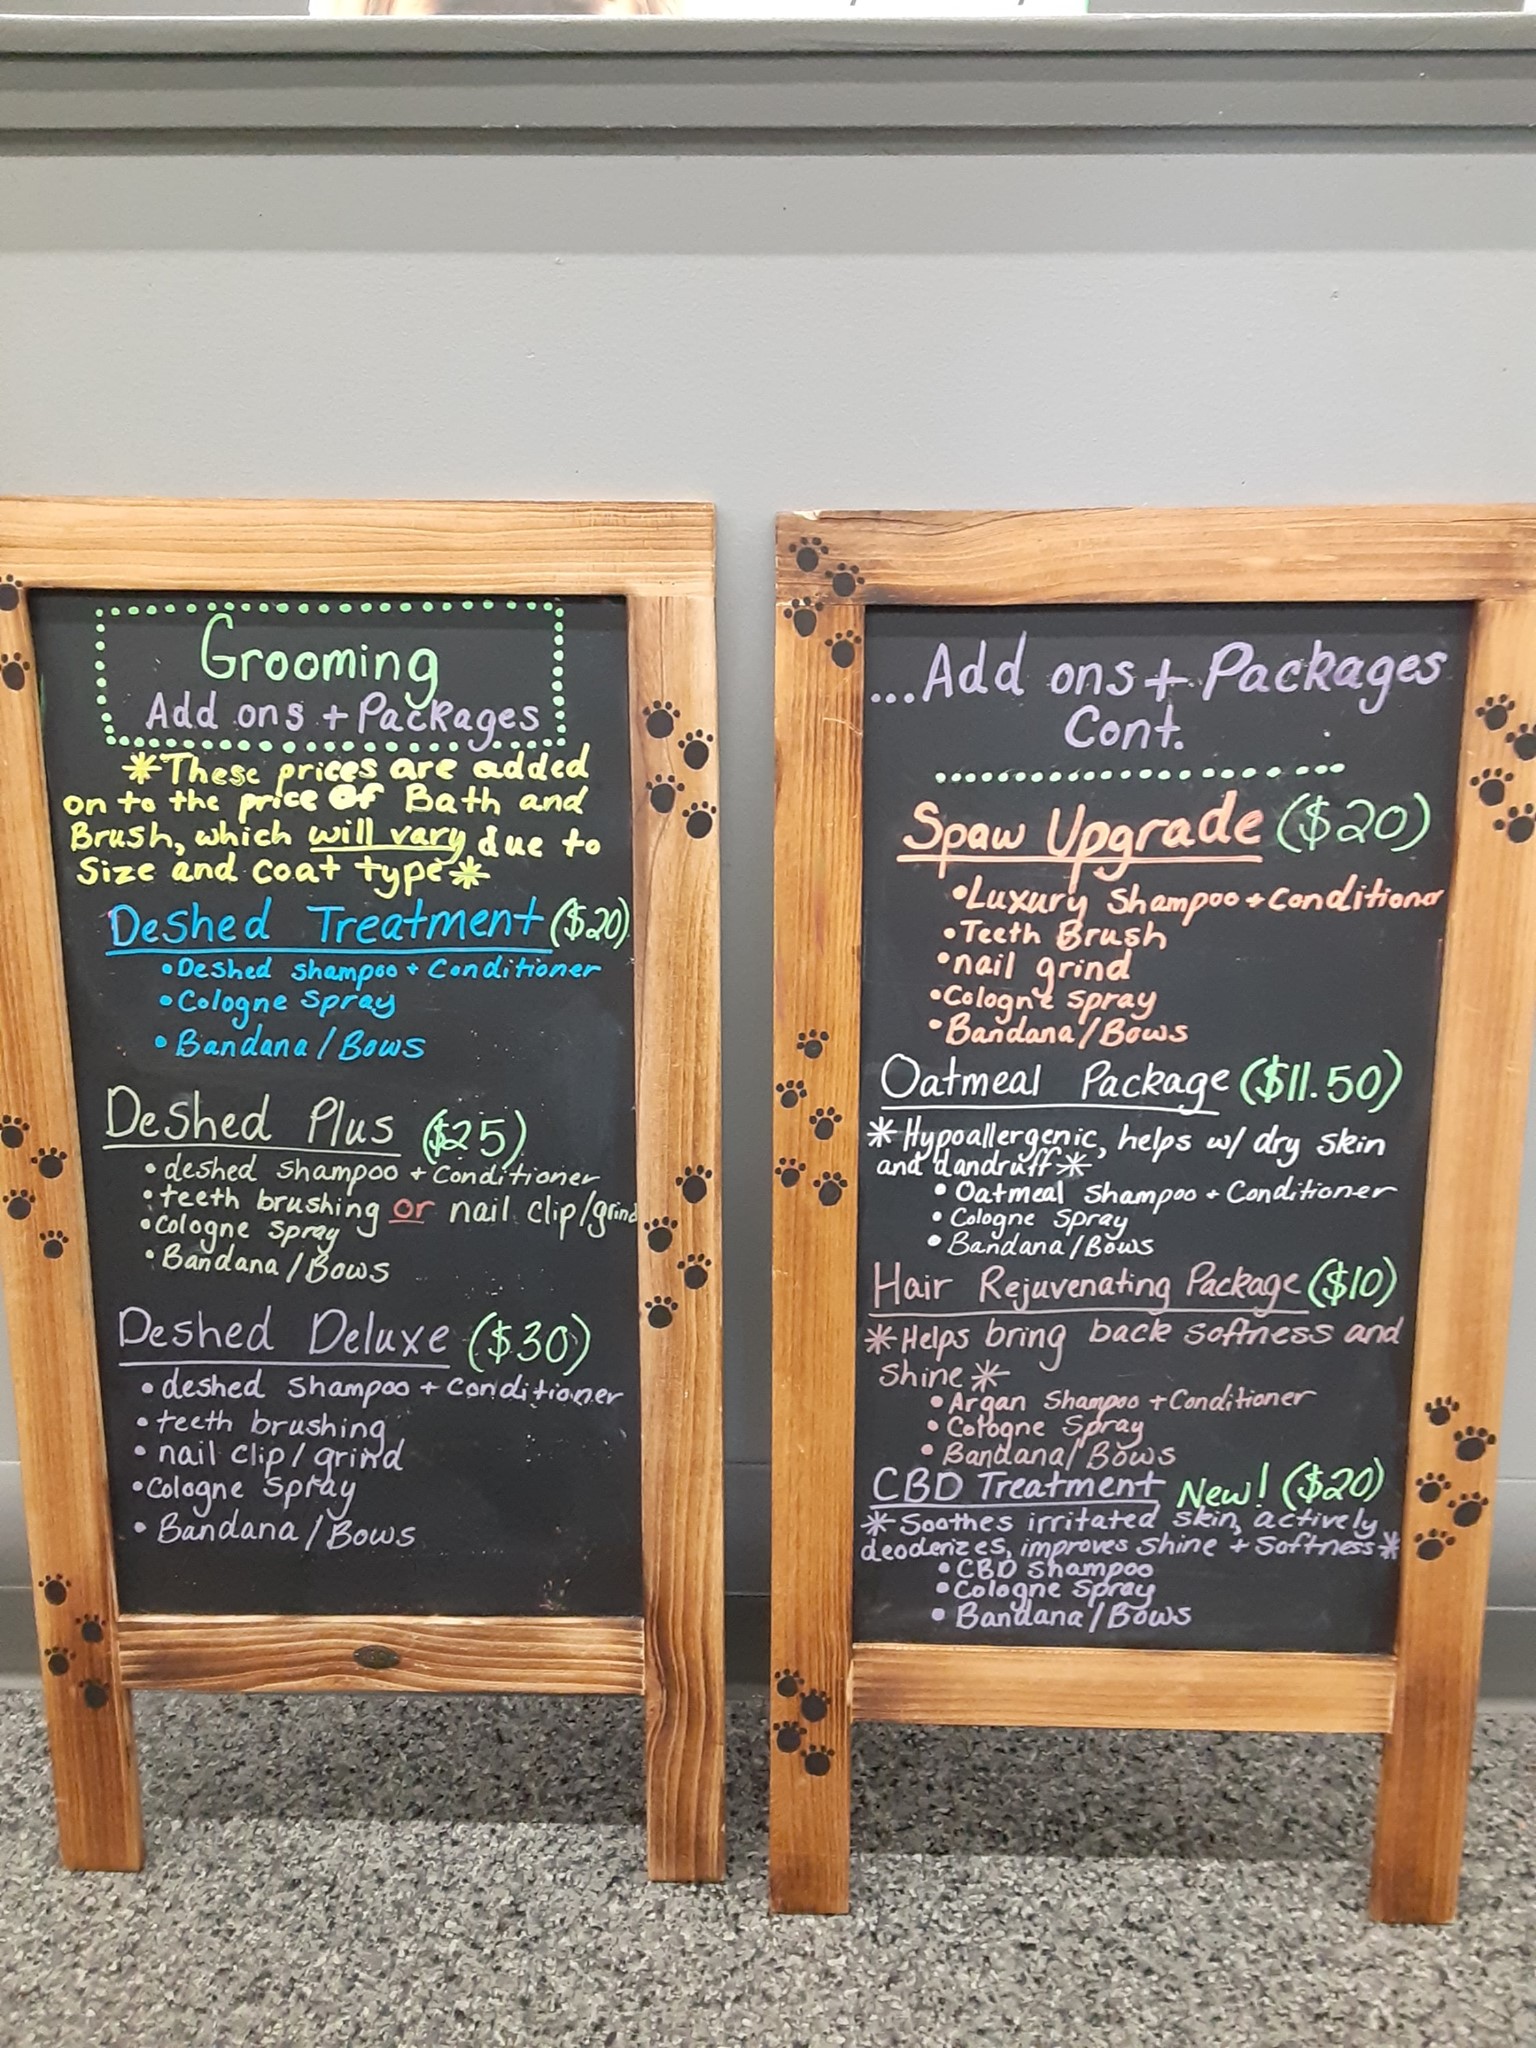 Grooming
Add ons + Packages
*These prices are added
on to the price of Bath and
Brush, which will vary due to
Size and coat type*
Deshed Treatment ($20)
• Deshed shampoo + Conditioner
• Cologne spray
• Bandana/Bows
Deshed Plus ($25)
• deshed shampoo + Conditioner
• teeth brushing or nail clip/grind
• Cologne Spray
• Bandana/Bows
Deshed Deluxe ($30)
• deshed shampoo + conditioner
• teeth brushing
• nail clip/grind
• Cologne Spray
• Bandana/Bows
...Add ons + Packages
Cont.
Spaw Upgrade ($20)
• Luxury Shampoo + Conditioner
• Teeth Brush
• nail grind
• Cologne spray
• Bandana/Bows
Oatmeal Package ($11.50)
* Hypoallergenic, helps w/ dry skin
and dandruff *
• Oatmeal Shampoo + Conditioner
• Cologne Spray
• Bandana/Bows
Hair Rejuvenating Package ($10)
* Helps bring back softness and
shine *
• Argan Shampoo + Conditioner
• Cologne Spray
• Bandana/Bows
CBD Treatment New! ($20)
* Soothes irritated skin, actively
deoderizes, improves shine + softness *
• CBD Shampoo
• Cologne Spray
• Bandana/Bows